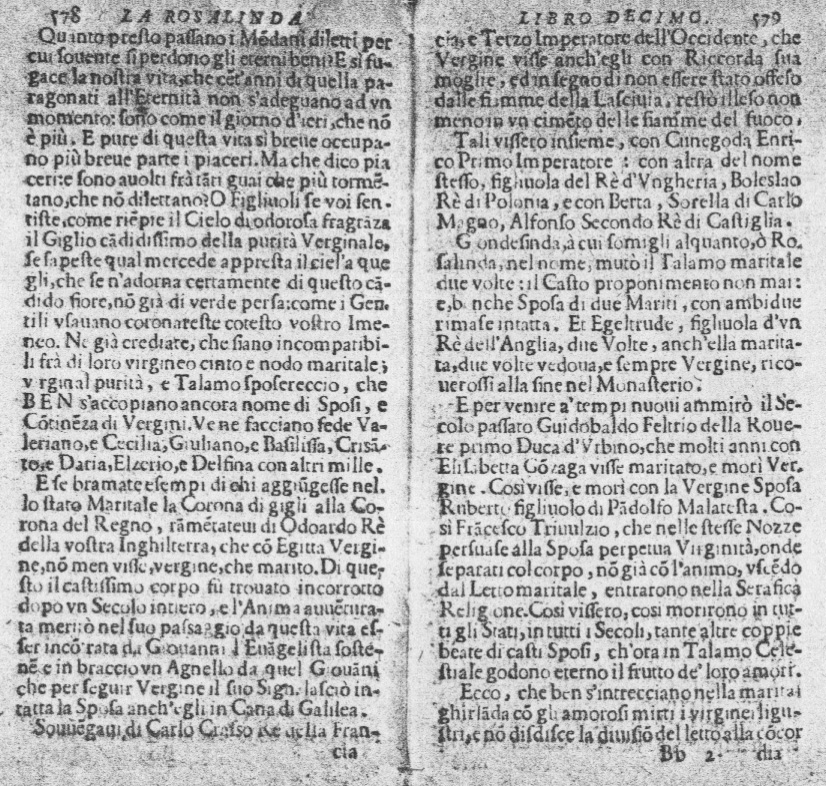 578 LA ROSALINDA
Quanto presto passano i Mõdani diletti per
cui souente si perdono gli eterni beni? E si fu-
gace la nostra vita, che cēt'anni di quella pa-
ragonati all'Eternità non s'adeguano ad vn
momento: sono come il giorno d'ieri, che nõ
è più. E pure di questa vita sì breue occupa-
no più breue parte i piaceri. Ma che dico pia
ceri: e sono auolti frà tãti guai che più tormē-
tano, che nõ dilettano? O Figliuoli se voi sen-
tiste, come riēpie il Cielo di odorosa fragrãza
il Giglio cãdidissimo della purità Verginale,
se sapeste qual mercede appresta il ciel'a que
gli, che se n'adorna certamente di questo cã-
dido fiore, nõ già di verde persa: come i Gen-
tili vsauano coronareste cotesto vostro Ime-
neo. Ne già crediate, che siano incompatibi-
li frà di loro virgineo cinto e nodo maritale;
virginal purità, e Talamo sposereccio, che
BEN s'accopiano ancora nome di Sposi, e
Cõtinēza di Vergini. Ve ne facciano fede Va-
leriano, e Cecilia, Giuliano, e Basilissa, Crisã-
to, e Daria, Elzerio, e Delfina con altri mille.
E se bramate esempi di chi aggiũgesse nel-
lo stato Maritale la Corona di gigli alla Co-
rona del Regno, rãmētateui di Odoardo Rè
della vostra Inghilterra, che cõ Egitta Vergi-
ne, nõ men visse, vergine, che marito. Di que-
sto il castissimo corpo fù trouato incorrotto
dopo vn Secolo intiero, e l'Anima auuētura-
ta meritò nel suo passaggio da questa vita es-
ser incõtrata da Giouanni l'Euãgelista sostē-
nē e in braccio vn Agnello da quel Giouãni
che per seguir Vergine il suo Sign. lasciò in-
tatta la Sposa anch'egli in Cana di Galilea.
Souuēgaui di Carlo Crasso Rè della Fran-
cia
LIBRO DECIMO. 579
cia, e Terzo Imperatore dell'Occidente, che
Vergine visse anch'egli con Riccorda sua
moglie, ed in segno di non essere stato offeso
dalle fiamme della Lasciuia, restò illeso non
meno in vn cimēto delle fiamme del fuoco.
Tali vissero insieme, con Cunegoda Enri-
co Primo Imperatore: con altra del nome
stesso, figliuola del Rè d'Vngheria, Boleslao
Rè di Polonia, e con Berta, Sorella di Carlo
Magno, Alfonso Secondo Rè di Castiglia.
Gondesinda, à cui somigli alquanto, ò Ro-
salinda, nel nome, mutò il Talamo maritale
due volte: il Casto proponimento non mai:
e, benche Sposa di due Mariti, con ambidue
rimase intatta. Et Egeltrude, figliuola d'vn
Rè dell'Anglia, due Volte, anch'ella marita-
ta, due volte vedoua, e sempre Vergine, rico-
uerossi alla fine nel Monasterio.
E per venire a' tempi nuoui ammirò il Se-
colo passato Guidobaldo Feltrio della Roue-
re primo Duca d'Vrbino, che molti anni con
Elisabetta Gõzaga visse maritato, e morì Ver-
gine. Così visse, e morì con la Vergine Sposa
Ruberto figliuolo di Pãdolfo Malatesta. Co-
sì Frãcesco Triuulzio, che nelle stesse Nozze
persuase alla Sposa perpetua Virginità, onde
separati col corpo, nõ già cõ l'animo, vscēdo
dal Letto maritale, entrarono nella Serafica
Religione. Così vissero, così morirono in tut-
ti gli Stati, in tutti i Secoli, tante altre coppie
beate di casti Sposi, ch'ora in Talamo Cele-
stiale godono eterno il frutto de' loro amori.
Ecco, che ben s'intrecciano nella marital
ghirlãda cõ gli amorosi mirti i virginei ligu-
stri, e nõ disdisce la diuisiõ del letto alla cõcor
Bb 2 dia